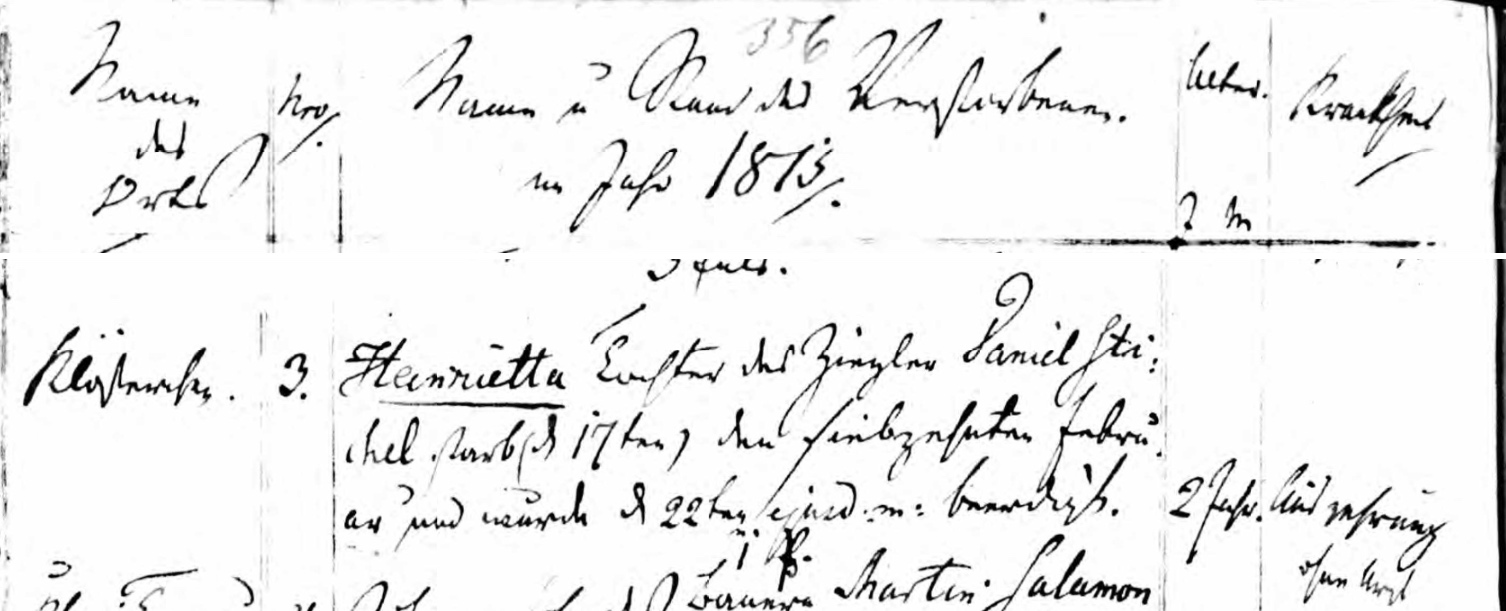 356
Name des Orts
Nro.
Name u Stand des Verstorbenen.
im Jahr 1813.
Alter.
J M
Krankheit
Klösterchen. 3. Henrietta Tochter des Ziegler Daniel Sti:
chel starb (d 17ten) den siebzehnten Febru
ar und wurde d 22ten ejusd: m: beerdigt. 2 Jahr. Auszehrung
ohne Arzt
Bauern Martin Salamon